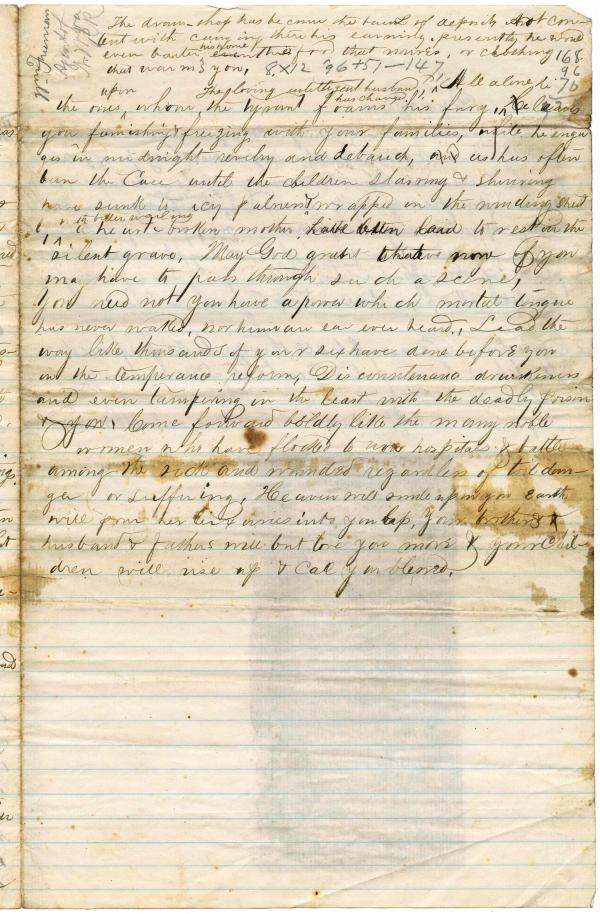 The dram-shop has become the bank of deposit. Not con-
tent with carrying there his earning presently he would
even barter his home the food that nurses, or clothing 168
that warms you, 8 X 12 96 + 51 — 147 96
upon The loving intelligent husband 76
has changed
the ones, whom the tyrant foams his fury, he leaves
you famishing & freezing with your families, while he enga
ges in midnight revelry and debauch, as has often
been the Case until the children starving & shivering
have sunk in icy paleness wrapped in the winding sheet
in bitter wailing
& heart-broken mother have been laid to rest in the
silent grave, May God grant that now of you
may have to pass through such a scene,
You need not you have a power which mortal tongue
has never, nor human ear ever heard., Lead the
way like thousands of your sex have done before you
in the temperance reform, Discountenance drunkenness
and even tampering in the least with the deadly poison
Come forward boldly like the many noble
women who have flocked to our hospitals & battle
among the sick and wounded regardless of the dan-
ger or suffering, Heaven will smile upon you Earth
will pour her luxuries into your lap, Your brothers &
husband & fathers will but love you more & your Chil-
dren will rise up & Call you blessed.